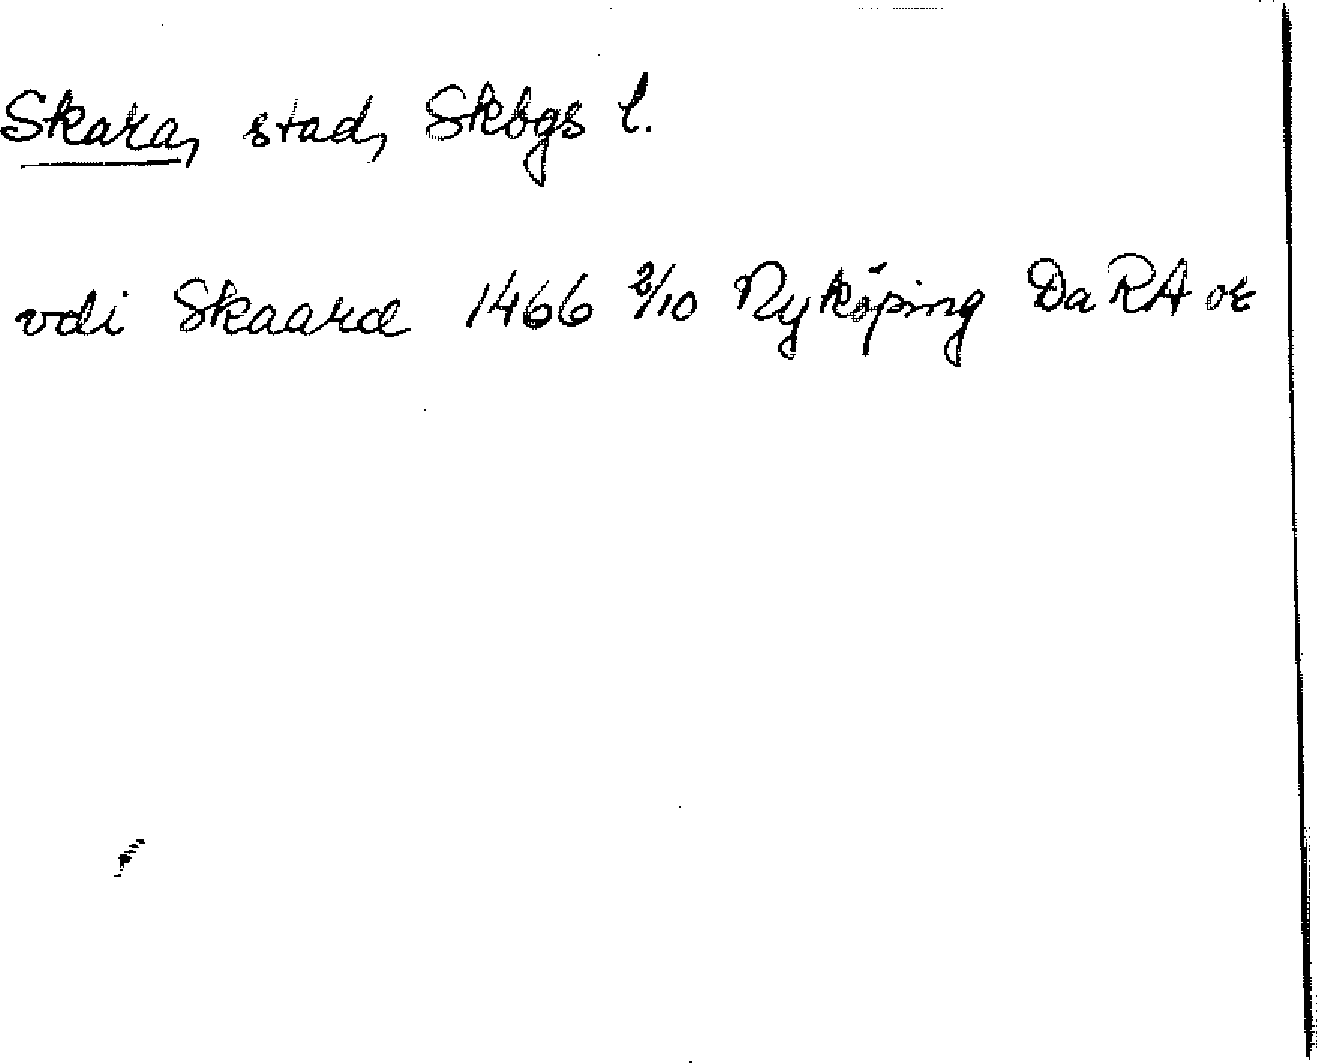 Skara, stad, Skbgs l.
vdi Skaaræ 1466 2/10 Nyköping DaRA or